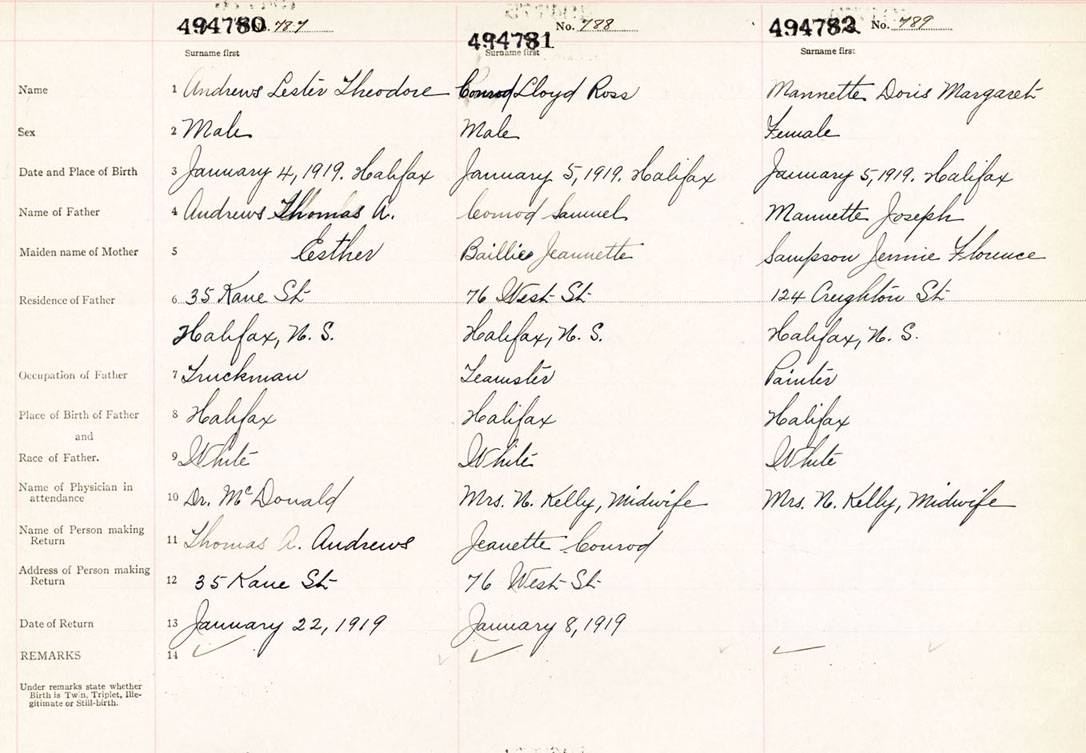 494780 No. 787 494781 No. 788 494782 No. 789
Surname first Surname first Surname first
Name 1 Andrews Lester Theodore Conrod Lloyd Ross Mannette Doris Margaret
Sex 2 Male Male Female
Date and Place of Birth 3 January 4, 1919. Halifax January 5, 1919. Halifax January 5, 1919. Halifax
Name of Father 4 Andrews Thomas A. Conrod Samuel Mannette Joseph
Maiden name of Mother 5 Esther Baillie Jeannette Sampson Jennie Florence
Residence of Father 6 35 Kane St 76 West St 124 Creighton St
Halifax, N. S. Halifax, N. S. Halifax, N. S.
Occupation of Father 7 Truckman Teamster Painter
Place of Birth of Father 8 Halifax Halifax Halifax
and
Race of Father. 9 White White White
Name of Physician in attendance 10 Dr. McDonald Mrs. N. Kelly, Midwife Mrs. N. Kelly, Midwife
Name of Person making Return 11 Thomas A. Andrews Jeanette Conrod
Address of Person making Return 12 35 Kane St 76 West St
Date of Return 13 January 22, 1919 January 8, 1919
REMARKS 14
Under remarks state whether
Birth is Twin, Triplet, Ille-
gitimate or Still-birth.